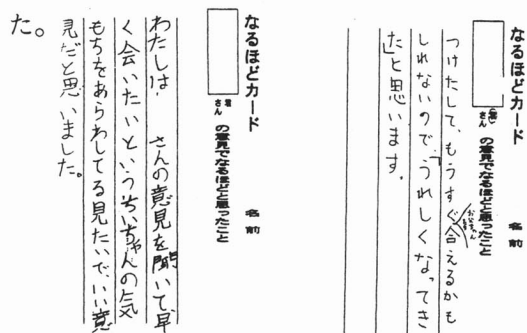 なるほどカード
名前
君
さん
の意見でなるほどと思ったこと
つけたして、もうすぐ会えるかも
おじちゃん
しれないので、「うれしくなってき
た」と思います。
なるほどカード
名前
君
さん
の意見でなるほどと思ったこと
わたしは、 さんの意見を聞いて早
く会いたいというちいちゃんの気
もちをあらわしてる見たいで、いい意
見だと思いました。
た。